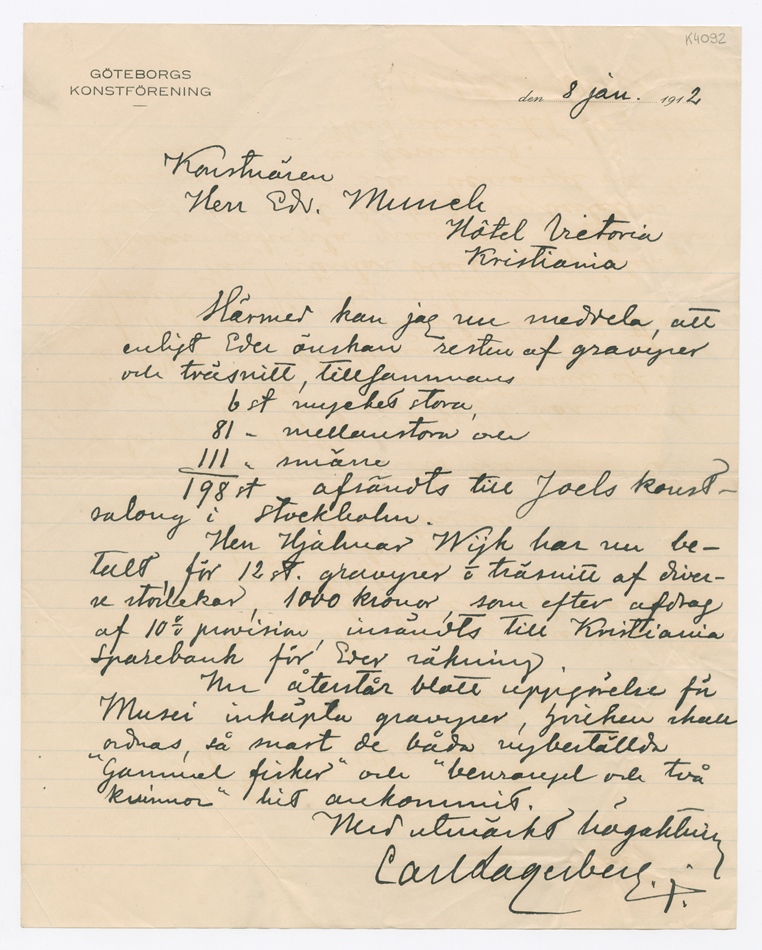 K4092
GÖTEBORGS
KONSTFÖRENING
den 8 jan. 1912
Konstnären
Herr Edv. Munch
Hôtel Victoria
Kristiania
Härmed kan jag nu meddela, att
enligt Eder önskan resten af gravyrer
och träsnitt, tillsammans
6 st mycket stora,
81 „ mellanstora och
111 „ smärre
198 st afsändts till Joels konst-
salong i Stockholm.
Herr Hjalmar Wijk har nu be-
talt, för 12 st. gravyrer o träsnitt af diver-
se storlekar, 1000 kronor, som efter afdrag
af 10% provision, insändts till Kristiania
Sparebank för Eder räkning.
Nu återstår blott uppgörelse för
Musei inköpta gravyrer, hvilken skall
ordnas, så snart de båda nybeställda
"Gammel fisker" och "benrangel och två
kvinnor" hit ankommit.
Med utmärkt högaktning
Carl Lagerberg. j:r